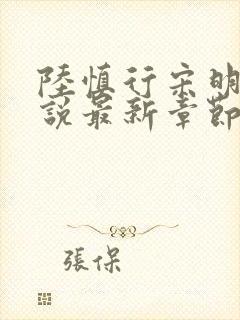 陸慎行宋明
說最新章節
張保